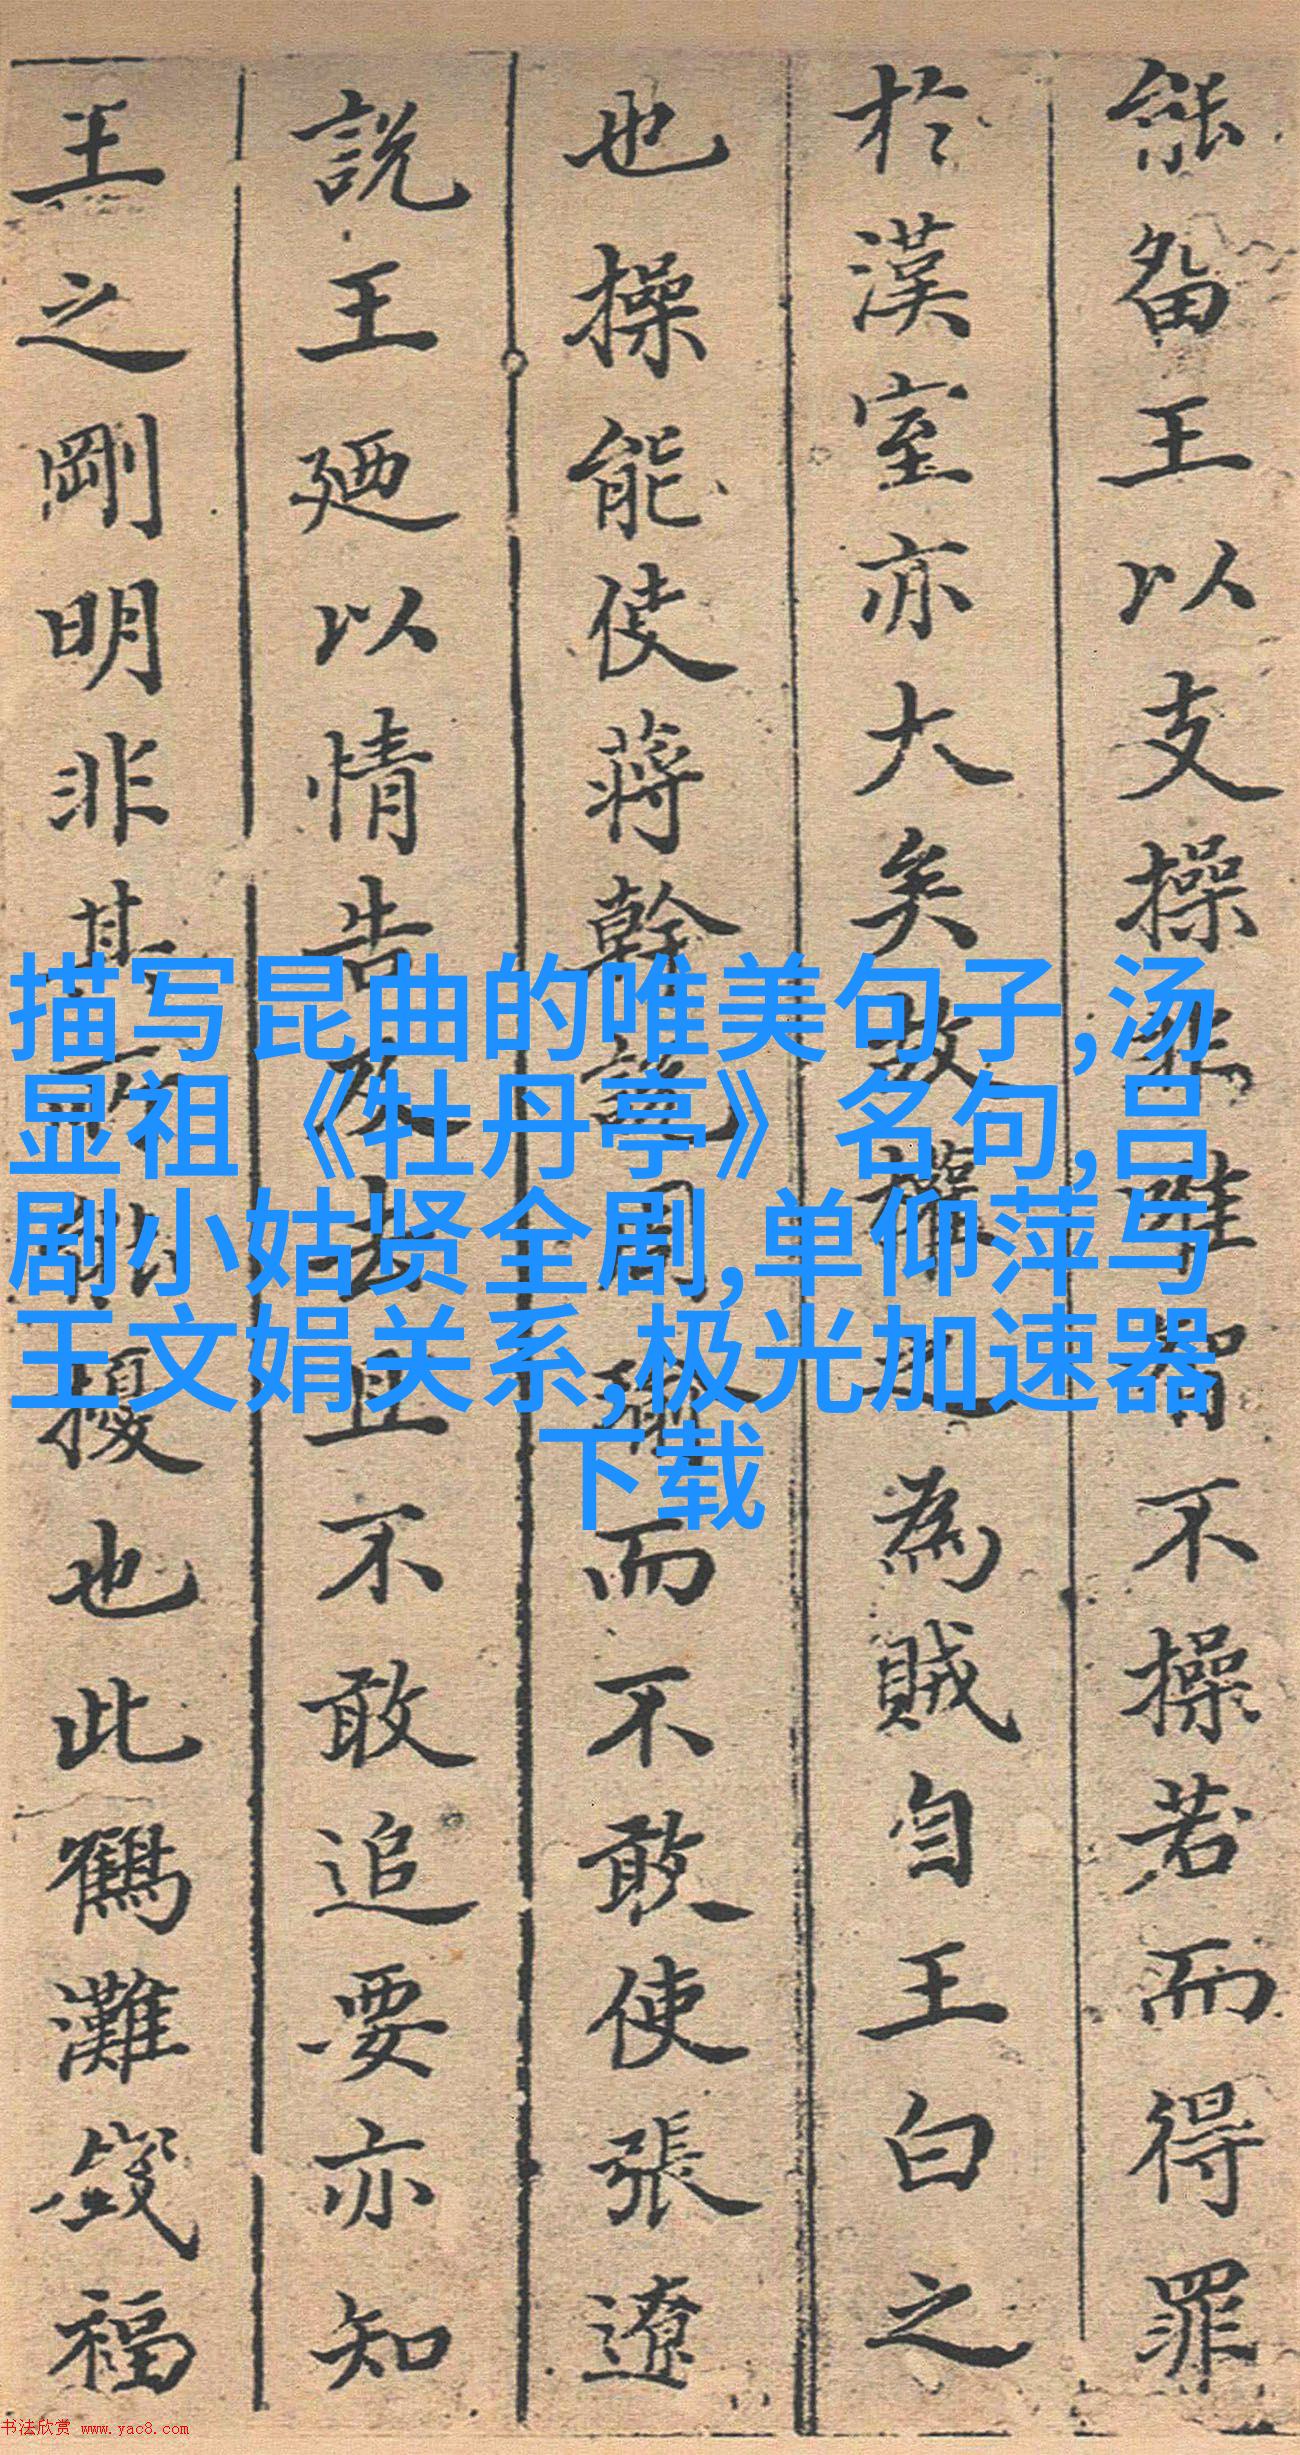 能留王以支操非唯智不操若而得罪
於漢室亦大矣故權之為賊自王白之
也操能使蔣幹說周瑜而不敢使張遼
說王廼以情告及去且不敢追要亦知
王之剛明非其所能擾也此鶴灘錢福
描写昆曲的唯美句子,汤
显祖《牡丹亭》名句,吕
剧小姑贤全剧,单仰萍与
王文娟关系,极光加速器
下载
书法欣赏 www.yac8.com